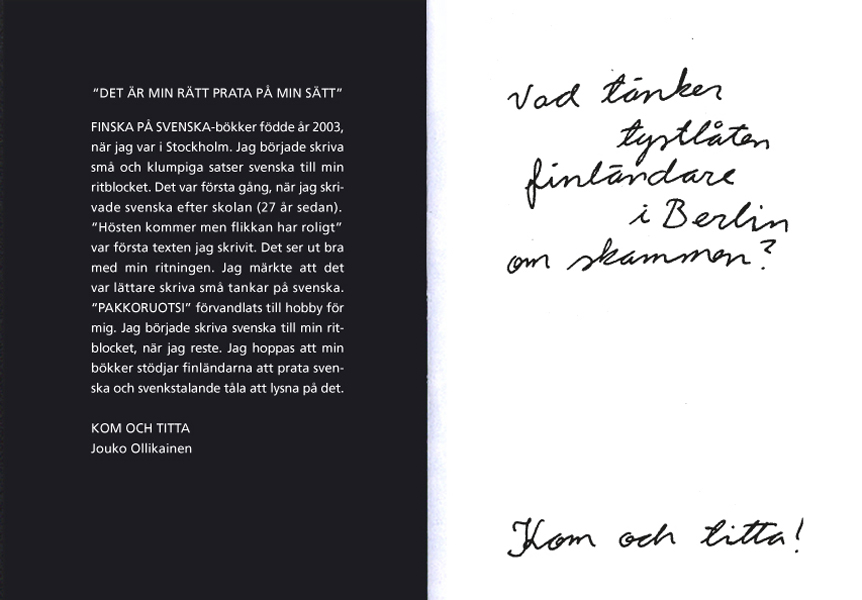 “DET ÄR MIN RÄTT PRATA PÅ MIN SÄTT”
FINSKA PÅ SVENSKA-bökker födde år 2003,
när jag var i Stockholm. Jag började skriva
små och klumpiga satser svenska till min
ritblocket. Det var första gång, när jag skri-
vade svenska efter skolan (27 år sedan).
“Hösten kommer men flikkan har roligt”
var första texten jag skrivit. Det ser ut bra
med min ritningen. Jag märkte att det
var lättare skriva små tankar på svenska.
“PAKKORUOTSI” förvandlats till hobby för
mig. Jag började skriva svenska till min rit-
blocket, när jag reste. Jag hoppas att min
bökker stödjar finländarna att prata sven-
ska och svenkstalande tåla att lysna på det.
KOM OCH TITTA
Jouko Ollikainen
Vad tänker
tystlåten
finländare
i Berlin
om skammen?
Kom och titta!